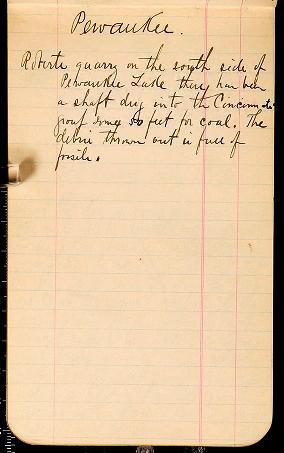 Pewaukee.
Roberts quarry on the south side of
Pewaukee Lake they has been
a shaft dug into the Cincinnati
group some 50 feet for coal. The
debris thrown out is full of
fossils.